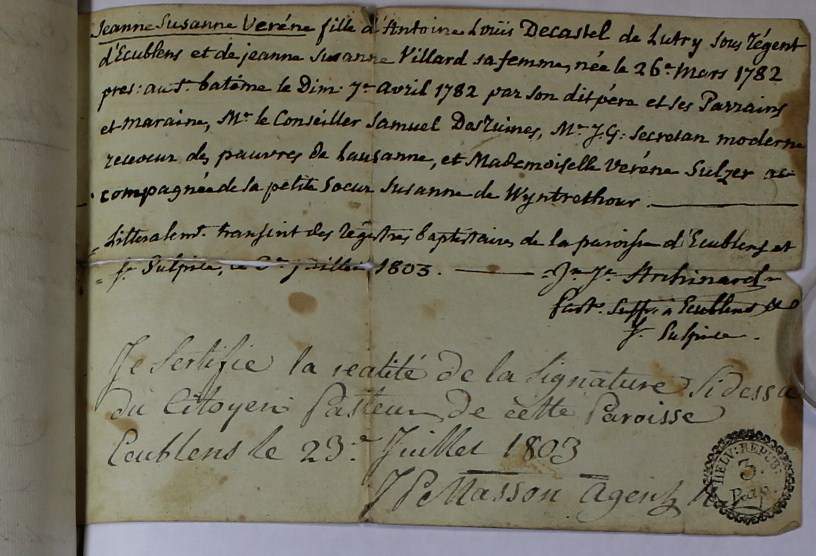 Jeanne Susanne Verène fille d'Antoine Loüis Decastel de Lutry sous Régent
d'Ecublens et de jeanne susanne Villard sa femme, née le 26.e mars 1782
pres: au S.t batême le Dim: 7.e avril 1782 par son dit père et ses Parrains
et maraine, M.r le Conseiller Samuel DesRuines, M.r J.G: Secretan moderne
receveur des pauvres de Lausanne, et Mademoiselle Verène Sulzer ac-
compagnée de la petite Soeur Susanne de Wyntrethour.
Litteralem.t transint des Régistres baptistaires de la paroisse d'Ecublens et
S.t Sulpice, le juillet 1803. Archinard
Past.r Suff: à Ecublens &
S.t Sulpice.
Je Sertifie la realité de la Signature Sidessu
du Citoyen Pasteur de cette Paroisse
Ecublens le 23.e Juillet 1803
JP Masson Agent
HELV: REPUB:
3.
Rap.